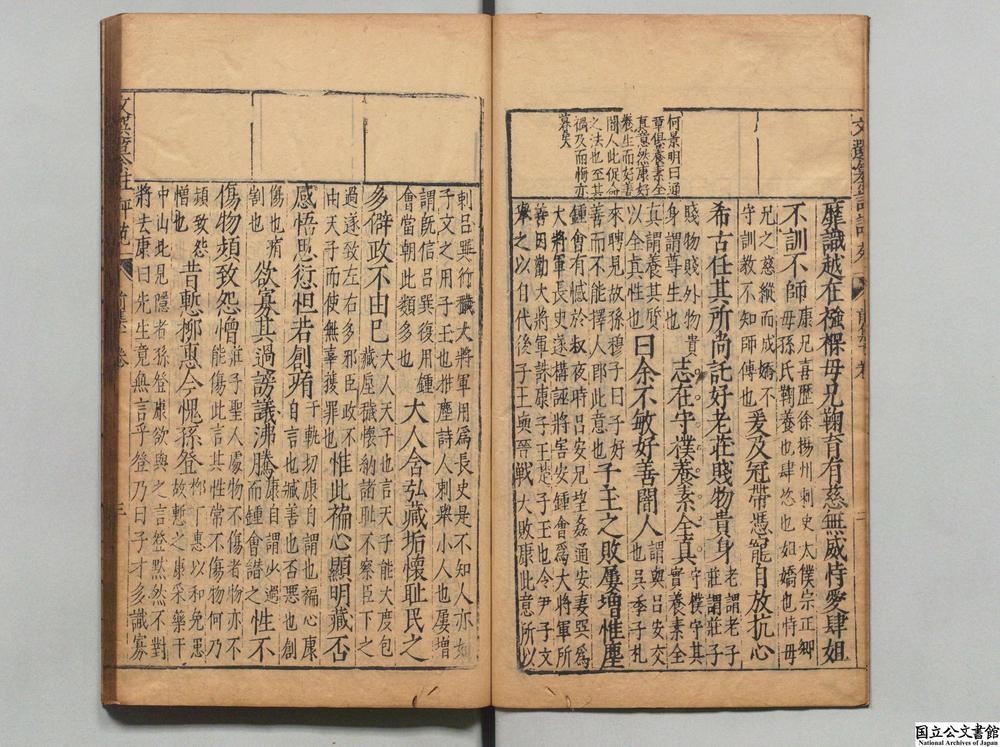 何景明曰通
章俱養素全
真意然康好
養生而好善
闇人此促命
之法也至其
禍及而悔亦
暮矣
靡識越在襁褓母兄鞠育有慈無威恃愛肆姐
不訓不師康兄喜歷徐楊州刺史太僕宗正卿母孫氏鞠養也肆恣也姐嬌也恃母
兄之慈縱而成嬌不守訓教不知師傅也爰及冠帶憑寵自放抗心
希古任其所尚託好老莊賤物貴身老謂老子莊謂莊子
賤物賤外物貴身謂尊生也志在守樸養素全真守樸守其實養素全
真謂養其質以全真性也曰余不敏好善闇人謂與呂安交也吳季子札
來聘見故孫穆子曰子好善而不能擇人即此意也子玉之敗屢增惟塵
鍾會有憾於叔夜時呂安兄巽姦通安妻巽爲大將軍長史遂構誣將害安鍾會爲大將軍所
善因勸大將軍誅康子王楚子王也令尹子文舉之以自代後子王與晉戰大敗康此意所以
刺呂巽行穢大將軍用爲長史是不知人亦如子文之用子王也惟塵詩人刺舉小人也屢增
謂既信呂巽復用鍾會當朝此類多也大人含弘藏垢懷恥民之
多僻政不由己大人天子也言天子能大度包藏垢穢懷納諸恥不察臣下之
過遂致左右多邪臣政不由天子而使無辜獲罪也惟此褊心顯明臧否
感悟思愆怛若創痏于軌切康自謂也褊心康自言也臧善也否惡也創
傷也痏割也欲寡其過謗議沸騰康自謂此過而鍾會譖之性不
傷物頻致怨憎莊子聖人處物不傷者物亦不能傷此言其性常不傷物何乃
頻致怨憎也昔慙柳惠今愧孫登柳丁惠以和免患故慙之康采藥于
中山北見隱者孫登康欲與之言登默然不對將去康曰先生竟無言乎登乃曰子才多識寡
三
国立公文書館
National Archives of Japan